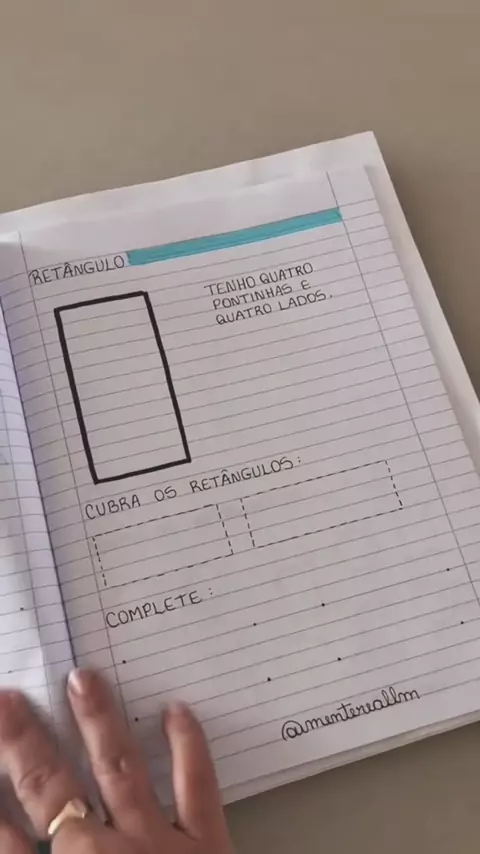 RETÂNGULO
TENHO QUATRO
PONTINHAS E
QUATRO LADOS.
CUBRA OS RETÂNGULOS:
COMPLETE:
@mentereallm